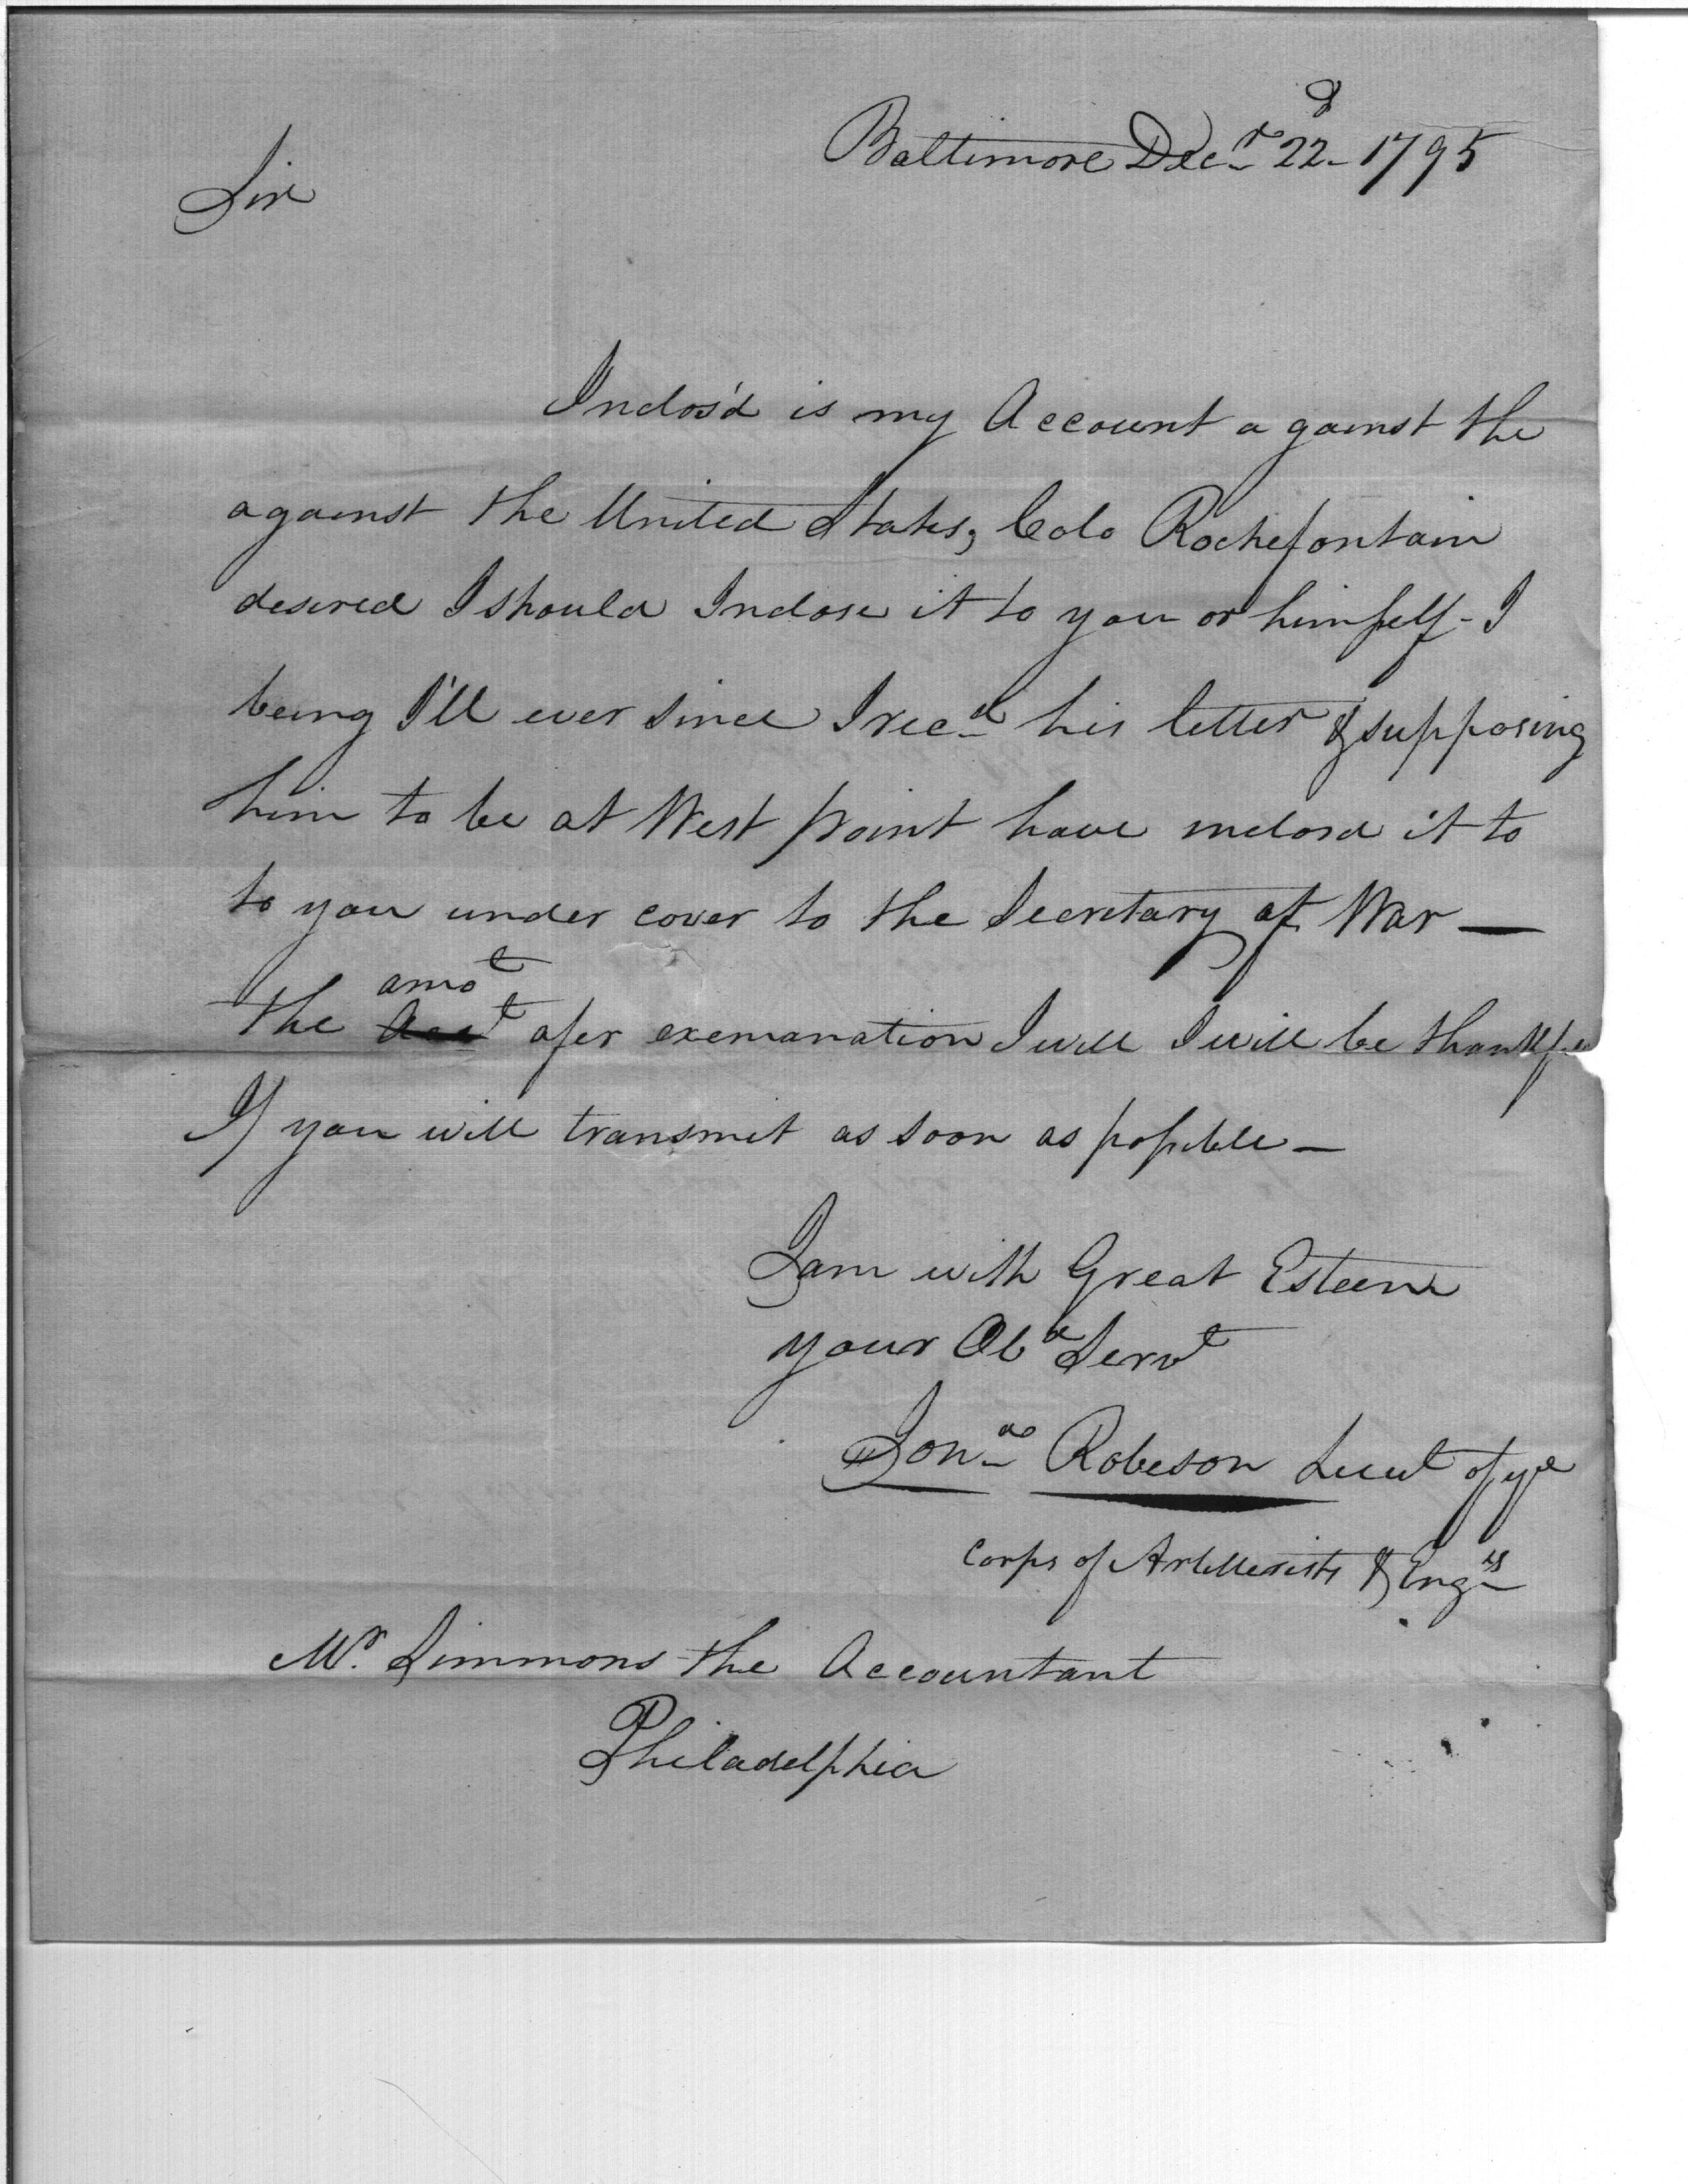 Baltimore Decr 22d 1795
Sir
Inclos'd is my Account against the
against the United States, Colo Rochefontain
desired I should Inclose it to you or himself - I
being I'll ever since I recd his letter & supposing
him to be at West point have inclosd it to
to you under cover to the Secretary of War —
amot
The Acct after exemanation I will I will be thankful
If you will transmit as soon as possible —
I am with Great Esteem
your Obd Servt
Jonaa Robeson Lieut of ye
Corps of Artillerists & Engrs
Mr. Simmons the Accountant
Philadelphia